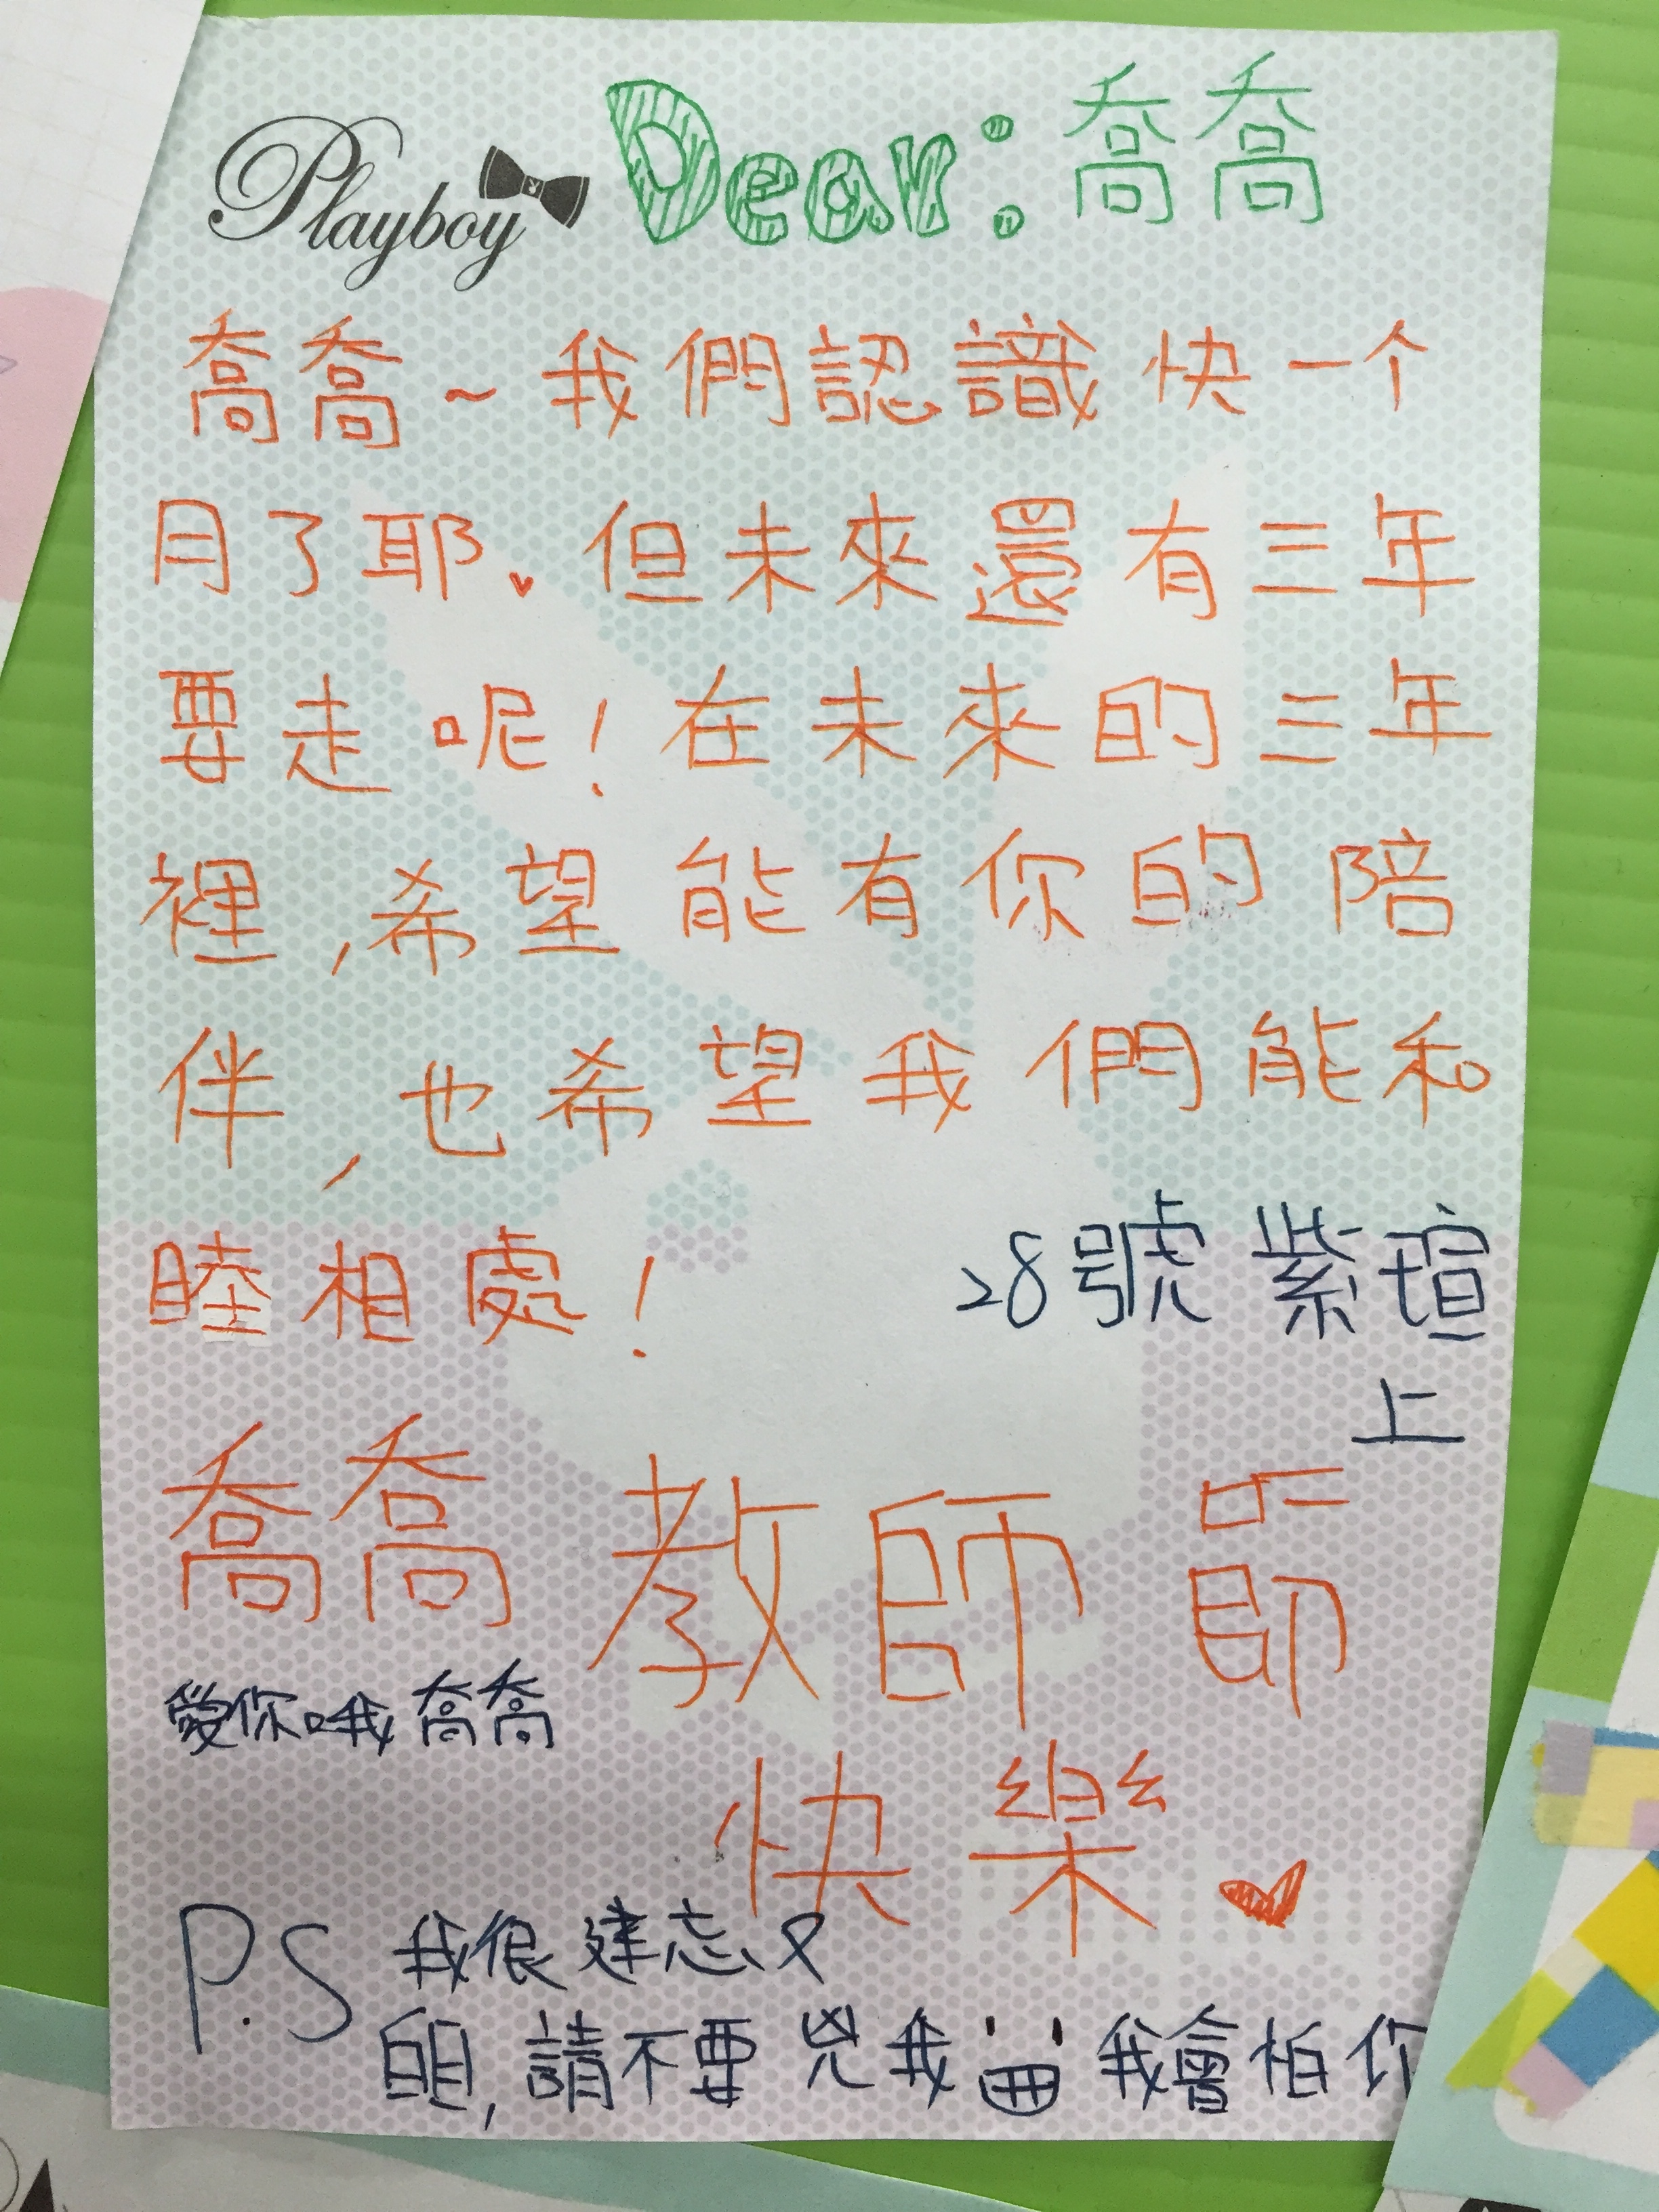 Playboy Dear:喬喬
喬喬~我們認識快一个
月了耶。但未來還有三年
要走呢!在未來的三年
裡,希望能有你的陪
伴,也希望我們能和
睦相處!
28號紫瑄
上
喬喬教師節
愛你哦喬喬
快樂
P.S 我很建忘又
白目,請不要兇我 我會怕你